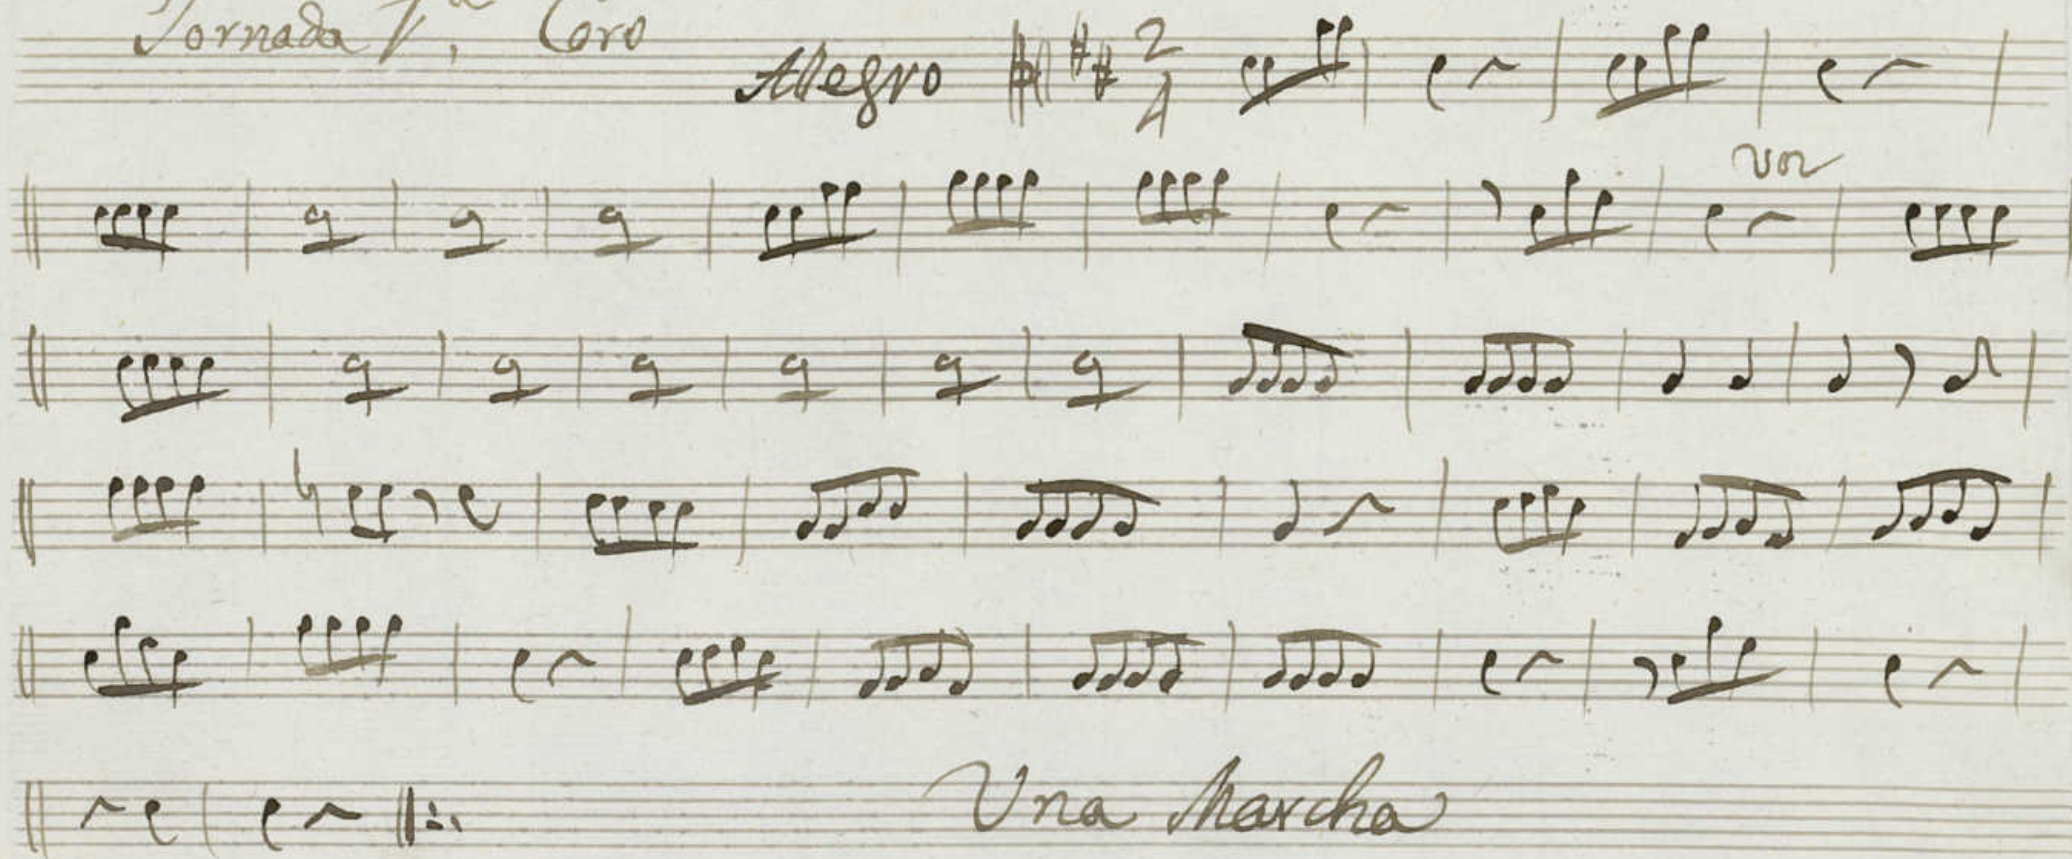 Jornada 1ª, Coro
Allegro 2/4
voz
Una Marcha